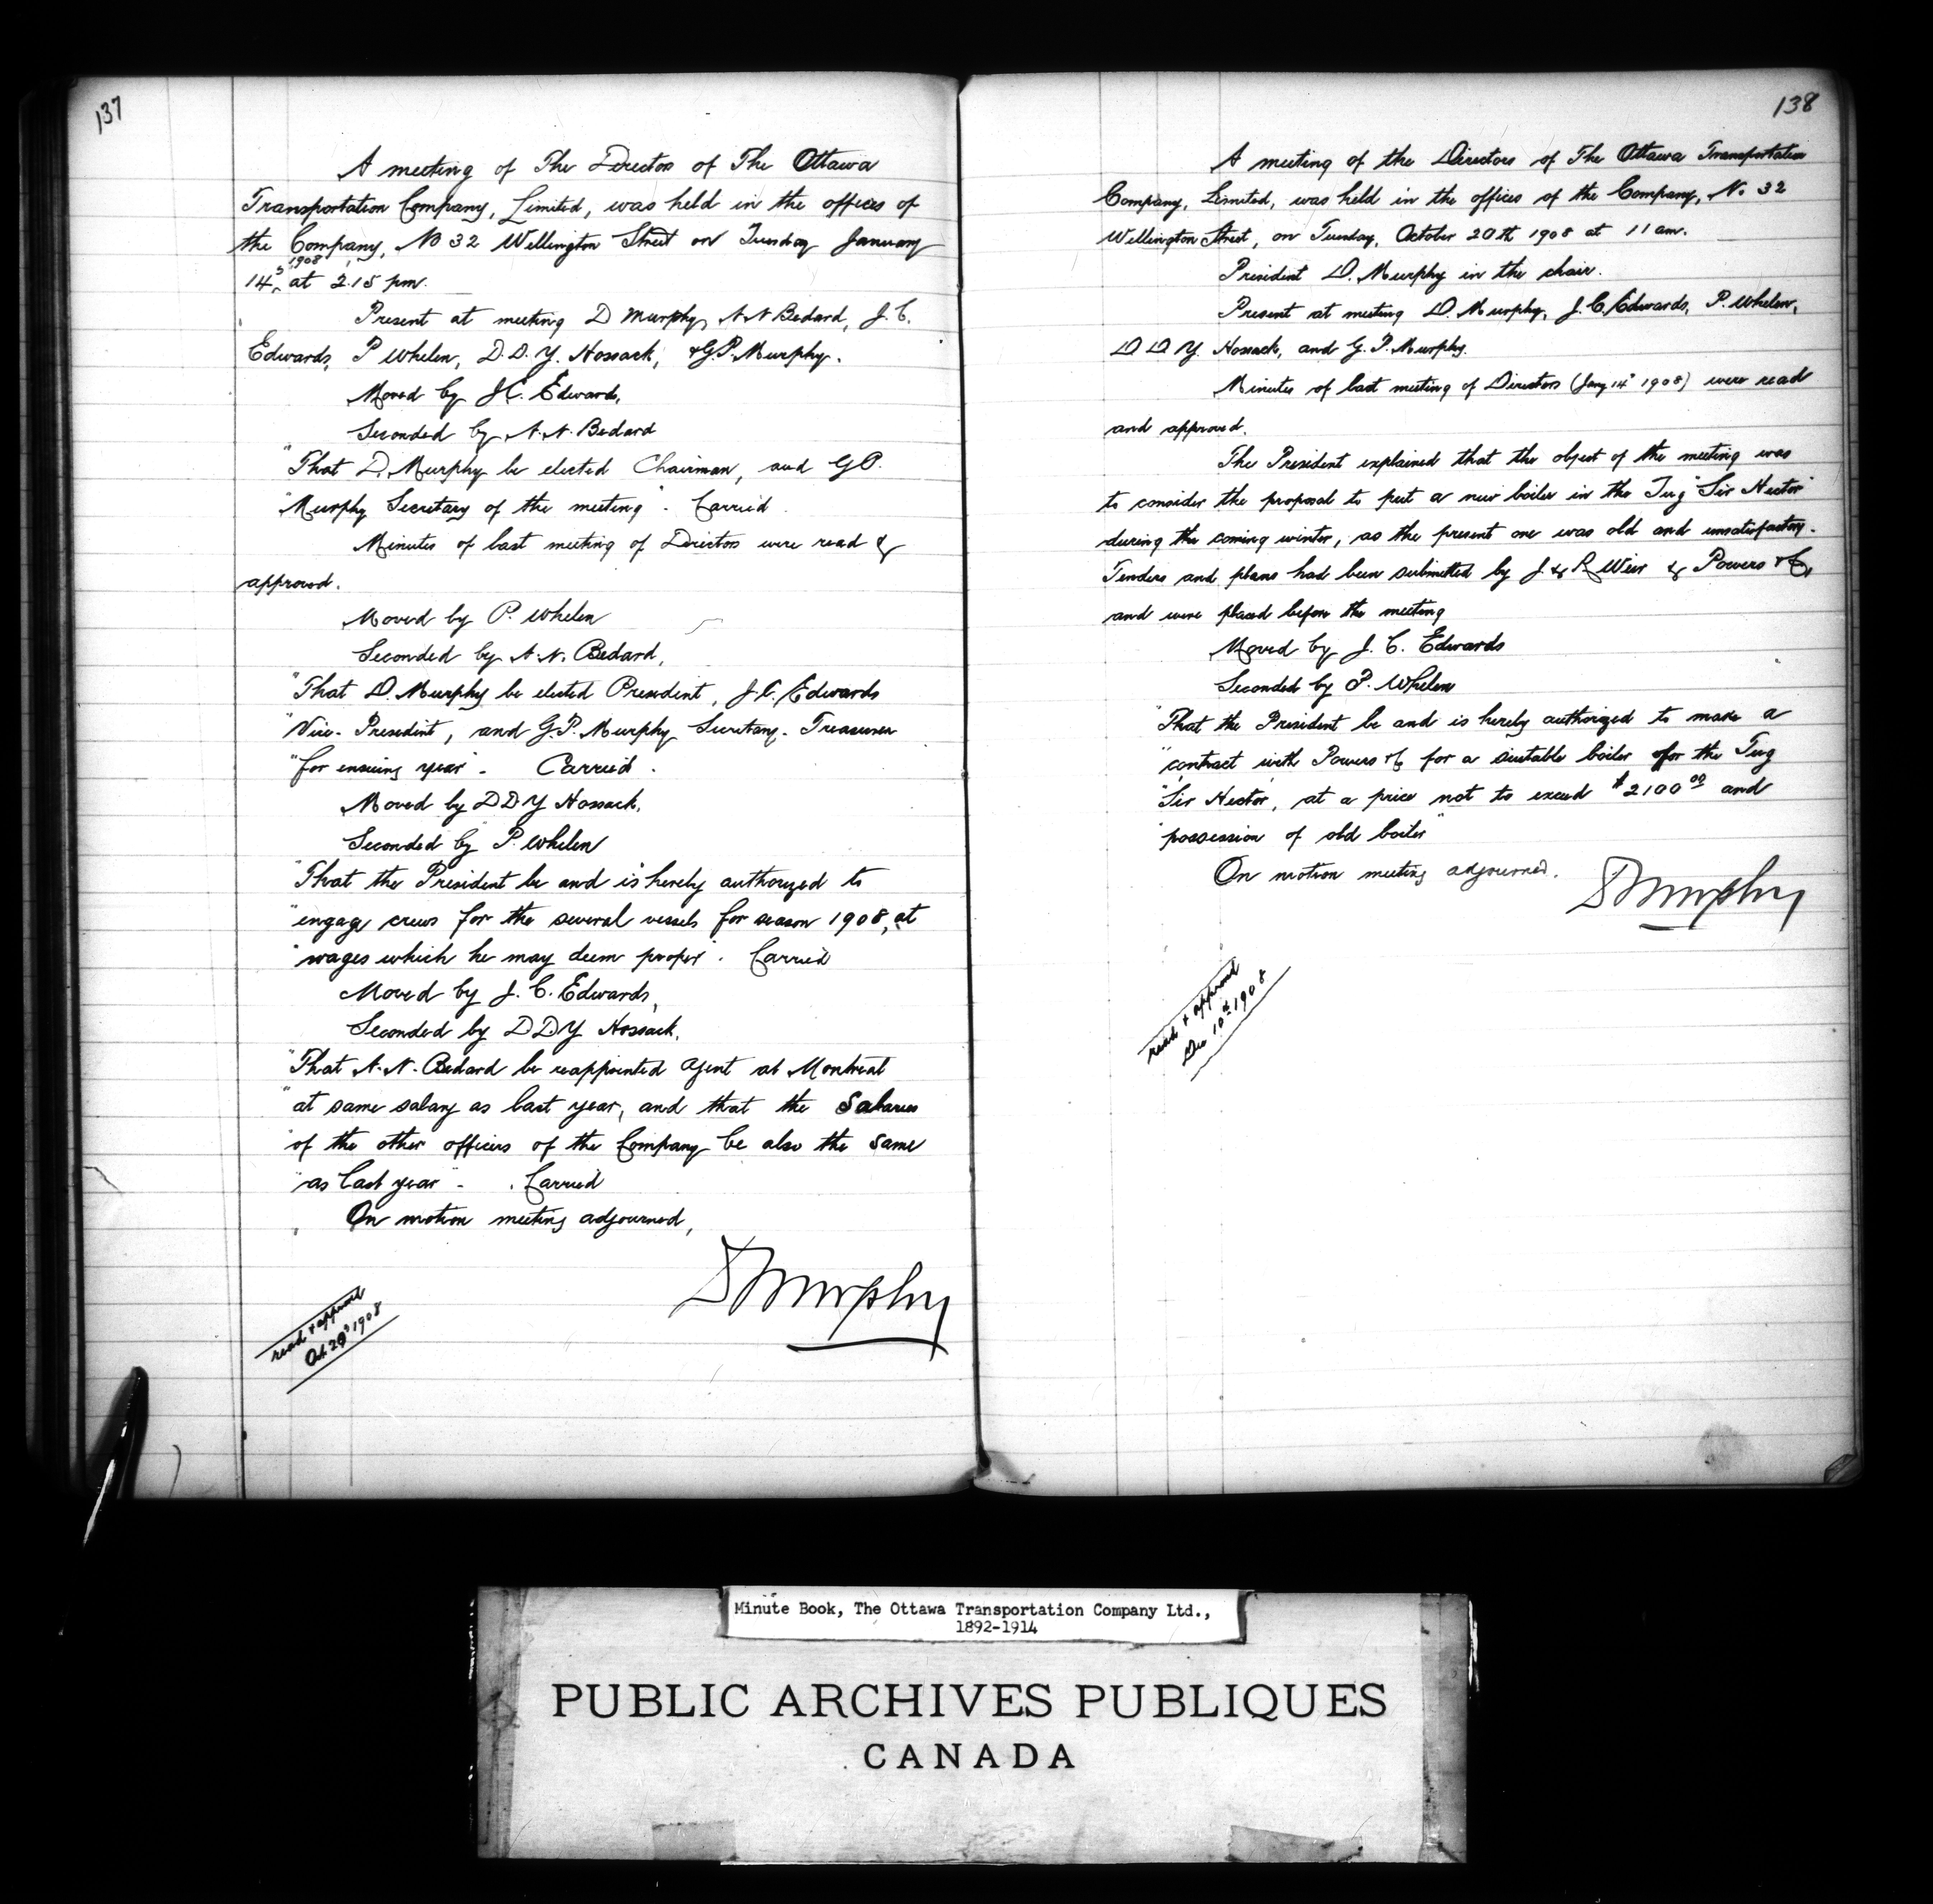 137
A meeting of The Directors of The Ottawa
Transportation Company, Limited, was held in the offices of
the Company, No 32 Wellington Street on Tuesday January
14th 1908 at 2.15 pm.
Present at meeting D Murphy, N.N Bedard, J.C.
Edwards, P Whelen, D.D.Y. Hossack, & G.P. Murphy.
Moved by J.C. Edwards,
Seconded by N.N. Bedard
"That D. Murphy be elected Chairman, and G P.
"Murphy Secretary of the meeting". Carried.
Minutes of last meeting of Directors were read &
approved.
Moved by P. Whelen
Seconded by N.N. Bedard,
"That D. Murphy be elected President, J.C. Edwards
"Vice-President, and G.P. Murphy Secretary-Treasurer
"for ensuing year". Carried.
Moved by D D Y Hossack,
Seconded by P. Whelen
"That the President be and is hereby authorized to
"engage crews for the several vessels for season 1908, at
"wages which he may deem proper". Carried
Moved by J. C. Edwards,
Seconded by D D Y Hossack,
"That N.N. Bedard be reappointed Agent at Montreal
"at same salary as last year, and that the Salaries
"of the other officers of the Company be also the same
"as last year". Carried
On motion meeting adjourned,
D Murphy
read & approved
Oct. 20th 1908
138
A meeting of the Directors of The Ottawa Transportation
Company, Limited, was held in the offices of the Company, No 32
Wellington Street, on Tuesday, October 20th 1908 at 11 am.
President D. Murphy in the chair.
Present at meeting D. Murphy, J. C. Edwards, P. Whelen,
D D Y Hossack, and G. P. Murphy.
Minutes of last meeting of Directors (Jany 14th 1908) were read
and approved.
The President explained that the object of the meeting was
to consider the proposal to put a new boiler in the Tug "Sir Hector"
during the coming winter, as the present one was old and unsatisfactory.
Tenders and plans had been submitted by J. & R Weir & Powers & Co,
and were placed before the meeting
Moved by J. C. Edwards
Seconded by P. Whelen
"That the President be and is hereby authorized to make a
"contract with Powers & Co for a suitable boiler for the Tug
"'Sir Hector', at a price not to exceed $2100.00 and
"possession of old boiler"
On motion meeting adjourned.
D Murphy
read & approved
Dec 10th 1908
Minute Book, The Ottawa Transportation Company Ltd.,
1892-1914
PUBLIC ARCHIVES PUBLIQUES
CANADA